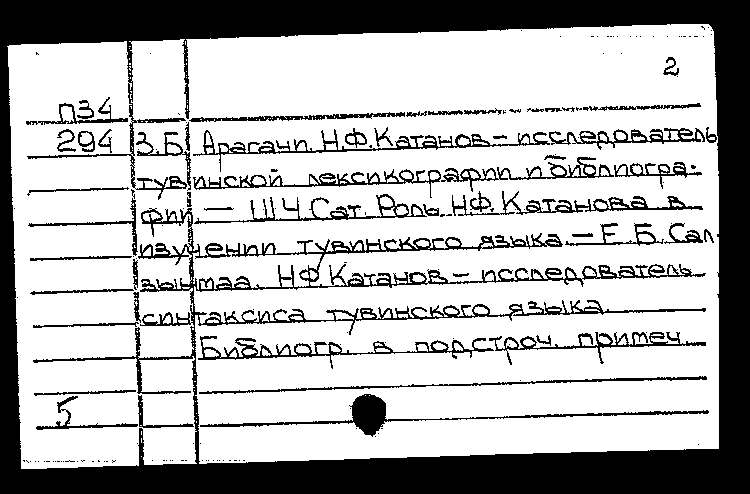 2
П34
294 З.Б. Арагачи. Н.Ф. Катанов - исследователь
тувинской лексикографии и библиогра-
фии. — Ш.Ч. Сат. Роль Н.Ф. Катанова в
изучении тувинского языка. - Е.Б. Сал-
зынмаа. Н.Ф. Катанов - исследователь
синтаксиса тувинского языка.
Библиогр. в подстроч. примеч.
5